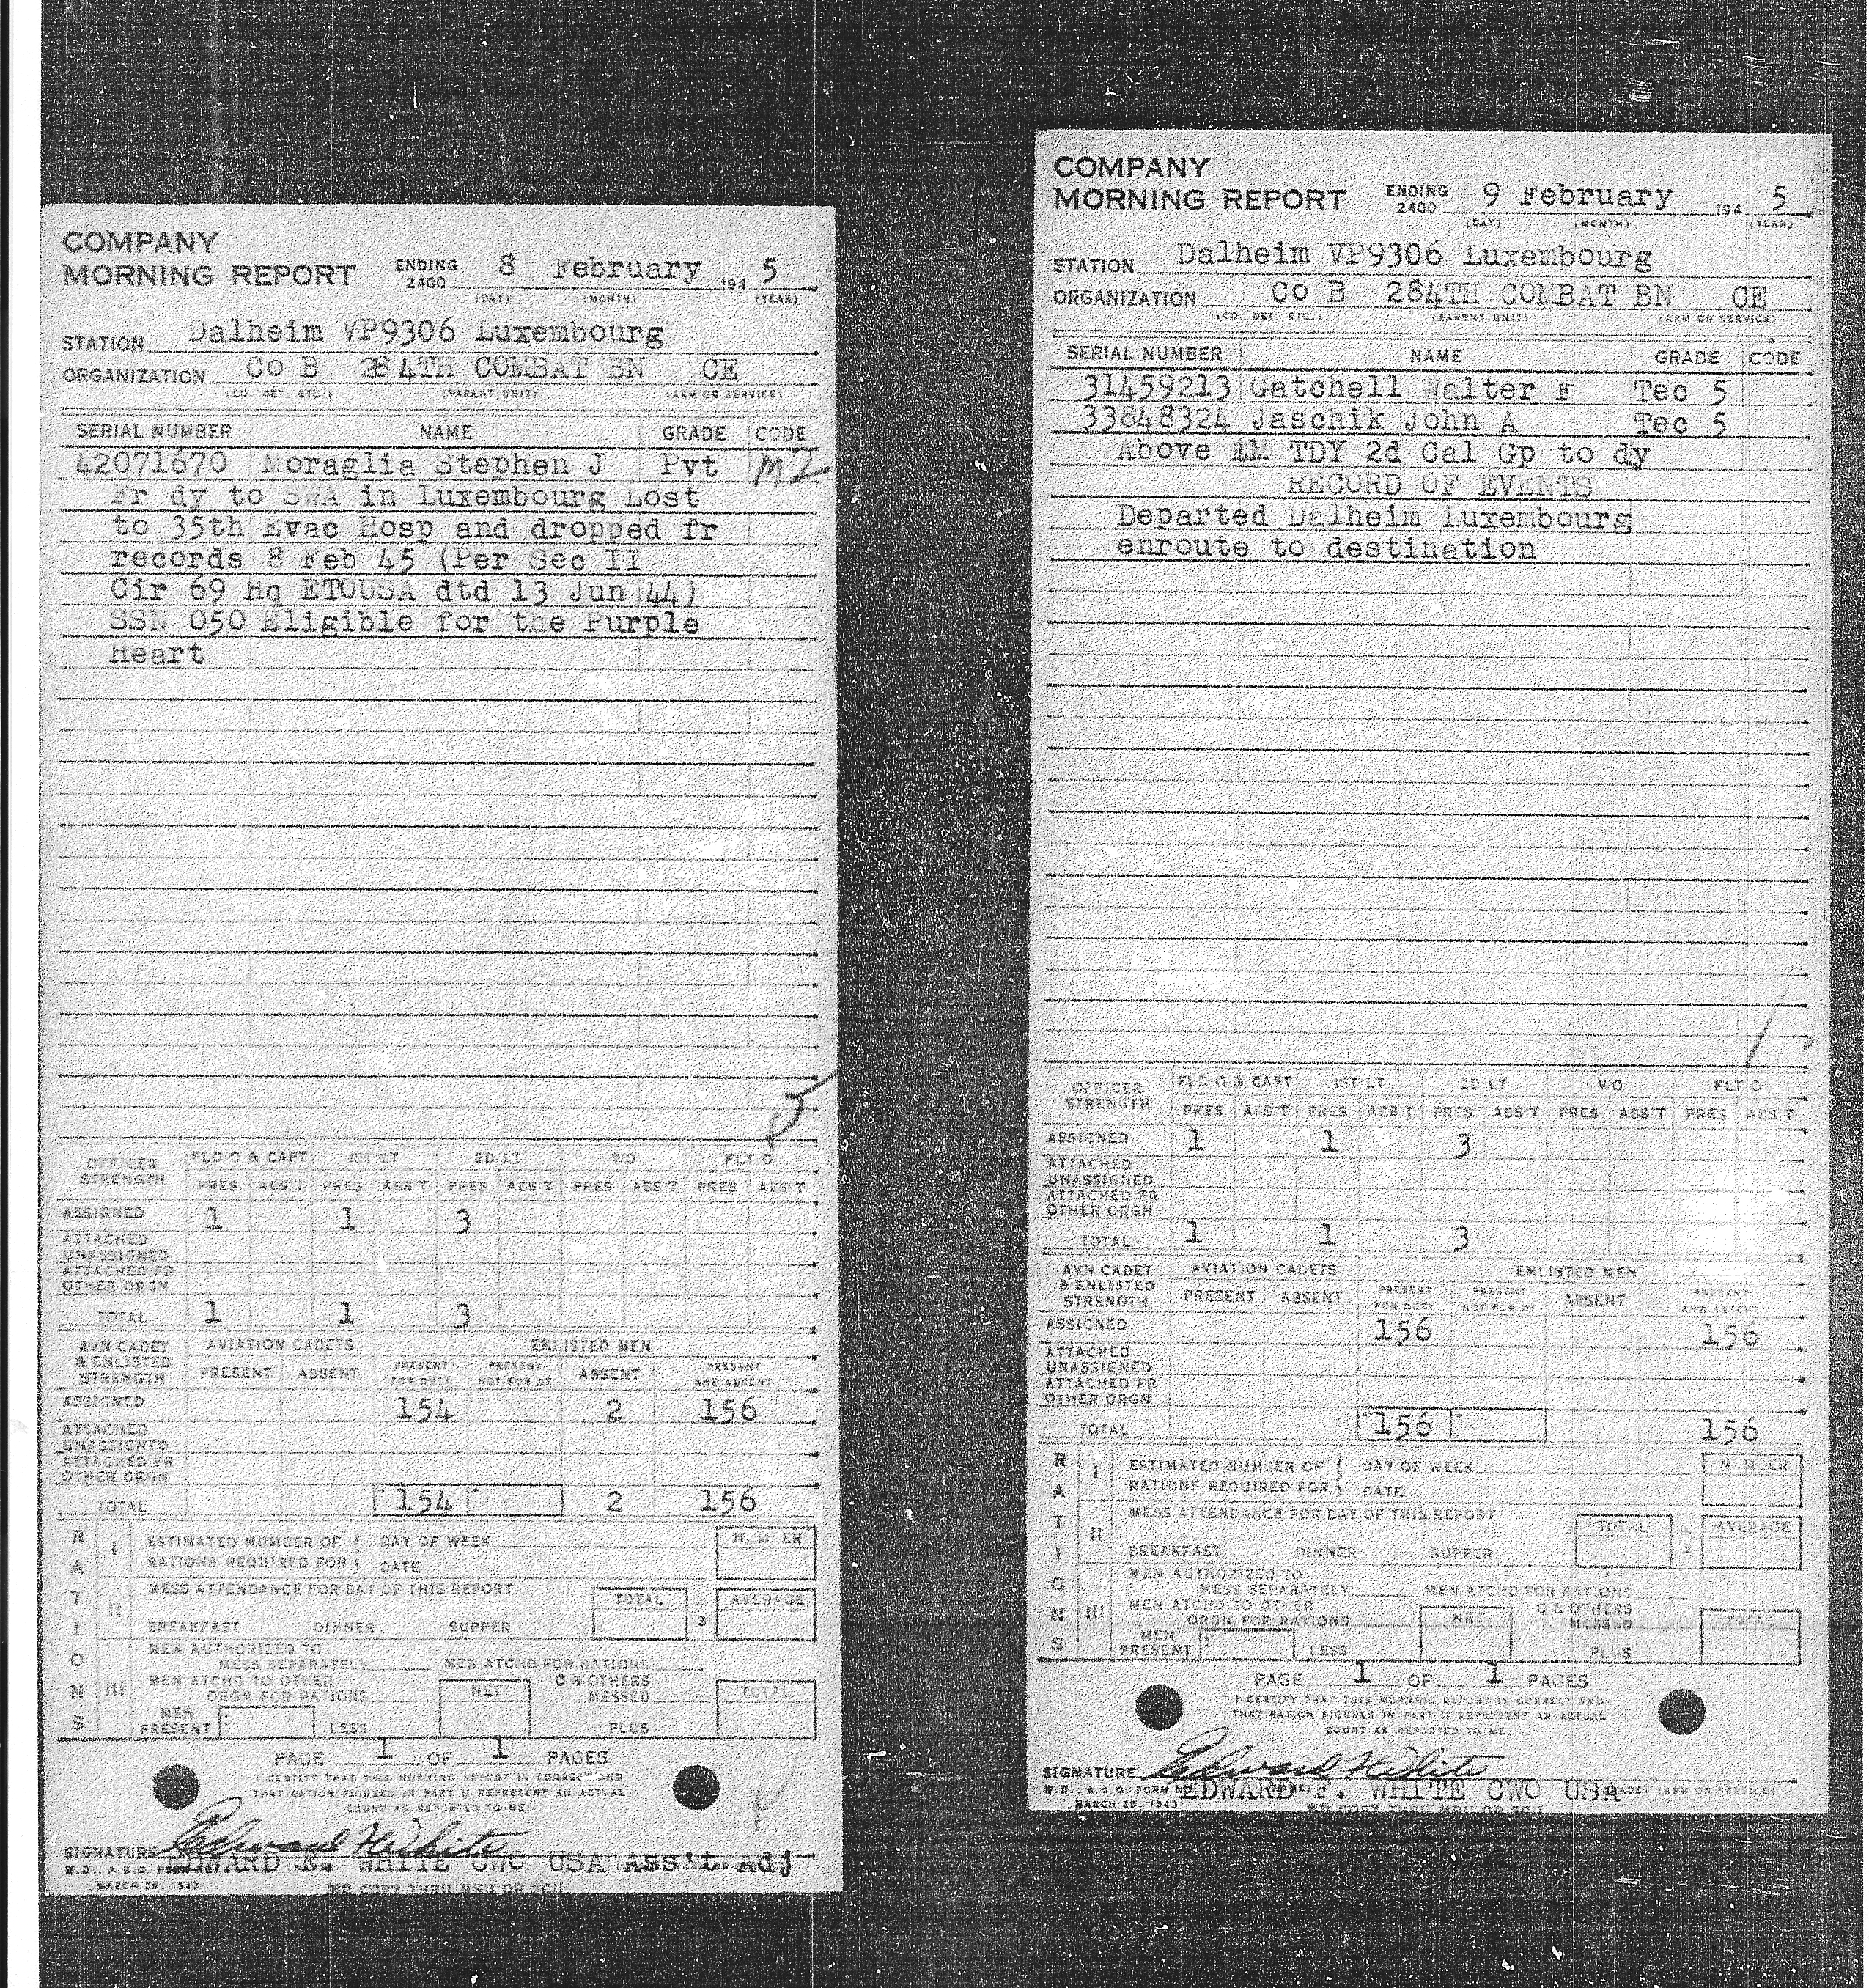 COMPANY
MORNING REPORT ENDING 2400 8 February 194 5
(DAY) (MONTH) (YEAR)
STATION Dalheim VP9306 Luxembourg
ORGANIZATION Co B 284TH COMBAT BN CE
(CO. DET. ETC.) (PARENT UNIT) (ARM OR SERVICE)
SERIAL NUMBER NAME GRADE CODE
42071670 Moraglia Stephen J Pvt
Fr dy to SWA in Luxembourg Lost
to 35th Evac Hosp and dropped fr
records 8 Feb 45 (Per Sec II
Cir 69 Hq ETOUSA dtd 13 Jun 44)
SSN 050 Eligible for the Purple
Heart
OFFICER STRENGTH FLD O & CAPT 1ST LT 2D LT WO FLT O
PRES ABS'T PRES ABS'T PRES ABS'T PRES ABS'T PRES ABS'T
ASSIGNED 1 1 3
ATTACHED UNASSIGNED
ATTACHED FR OTHER ORGN
TOTAL 1 1 3
AVN CADET & ENLISTED STRENGTH AVIATION CADETS ENLISTED MEN
PRESENT ABSENT PRESENT FOR DUTY PRESENT NOT FOR DY ABSENT PRESENT AND ABSENT
ASSIGNED 154 2 156
ATTACHED UNASSIGNED
ATTACHED FR OTHER ORGN
TOTAL 154 2 156
RATIONS
I ESTIMATED NUMBER OF RATIONS REQUIRED FOR DAY OF WEEK DATE NUMBER
II MESS ATTENDANCE FOR DAY OF THIS REPORT TOTAL ÷ 3 AVERAGE
BREAKFAST DINNER SUPPER
III MEN AUTHORIZED TO MESS SEPARATELY MEN ATCHD FOR RATIONS
MEN ATCHD TO OTHER ORGN FOR RATIONS NET O & OTHERS MESSED TOTAL
MEN PRESENT LESS PLUS
PAGE 1 OF 1 PAGES
I CERTIFY THAT THIS MORNING REPORT IS CORRECT AND
THAT RATION FIGURES IN PART II REPRESENT AN ACTUAL
COUNT AS REPORTED TO ME.
SIGNATURE Edward F White
EDWARD F. WHITE CWO USA Ass't. Adj
W.D., A.G.O. FORM
MARCH 25, 1943
WD COPY THRU MRU OR SCU
COMPANY
MORNING REPORT ENDING 2400 9 February 194 5
(DAY) (MONTH) (YEAR)
STATION Dalheim VP9306 Luxembourg
ORGANIZATION Co B 284TH COMBAT BN CE
(CO. DET. ETC.) (PARENT UNIT) (ARM OR SERVICE)
SERIAL NUMBER NAME GRADE CODE
31459213 Gatchell Walter F Tec 5
33848324 Jaschik John A Tec 5
Above EM TDY 2d Cal Gp to dy
RECORD OF EVENTS
Departed Dalheim Luxembourg
enroute to destination
OFFICER STRENGTH FLD O & CAPT 1ST LT 2D LT WO FLT O
PRES ABS'T PRES ABS'T PRES ABS'T PRES ABS'T PRES ABS'T
ASSIGNED 1 1 3
ATTACHED UNASSIGNED
ATTACHED FR OTHER ORGN
TOTAL 1 1 3
AVN CADET & ENLISTED STRENGTH AVIATION CADETS ENLISTED MEN
PRESENT ABSENT PRESENT FOR DUTY PRESENT NOT FOR DY ABSENT PRESENT AND ABSENT
ASSIGNED 156 156
ATTACHED UNASSIGNED
ATTACHED FR OTHER ORGN
TOTAL 156 156
RATIONS
I ESTIMATED NUMBER OF RATIONS REQUIRED FOR DAY OF WEEK DATE NUMBER
II MESS ATTENDANCE FOR DAY OF THIS REPORT TOTAL ÷ 3 AVERAGE
BREAKFAST DINNER SUPPER
III MEN AUTHORIZED TO MESS SEPARATELY MEN ATCHD FOR RATIONS
MEN ATCHD TO OTHER ORGN FOR RATIONS NET O & OTHERS MESSED TOTAL
MEN PRESENT LESS PLUS
PAGE 1 OF 1 PAGES
I CERTIFY THAT THIS MORNING REPORT IS CORRECT AND
THAT RATION FIGURES IN PART II REPRESENT AN ACTUAL
COUNT AS REPORTED TO ME.
SIGNATURE Edward F White
EDWARD F. WHITE CWO USA
W.D., A.G.O. FORM NO. (GRADE: ARM OR SERVICE)
MARCH 25, 1943
WD COPY THRU MRU OR SCU